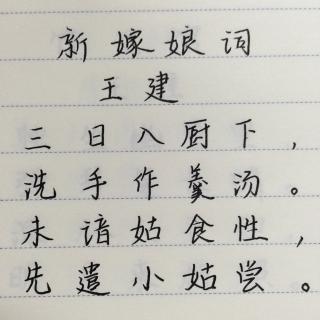 新嫁娘词
王建
三日入厨下，
洗手作羹汤。
未谙姑食性，
先遣小姑尝。